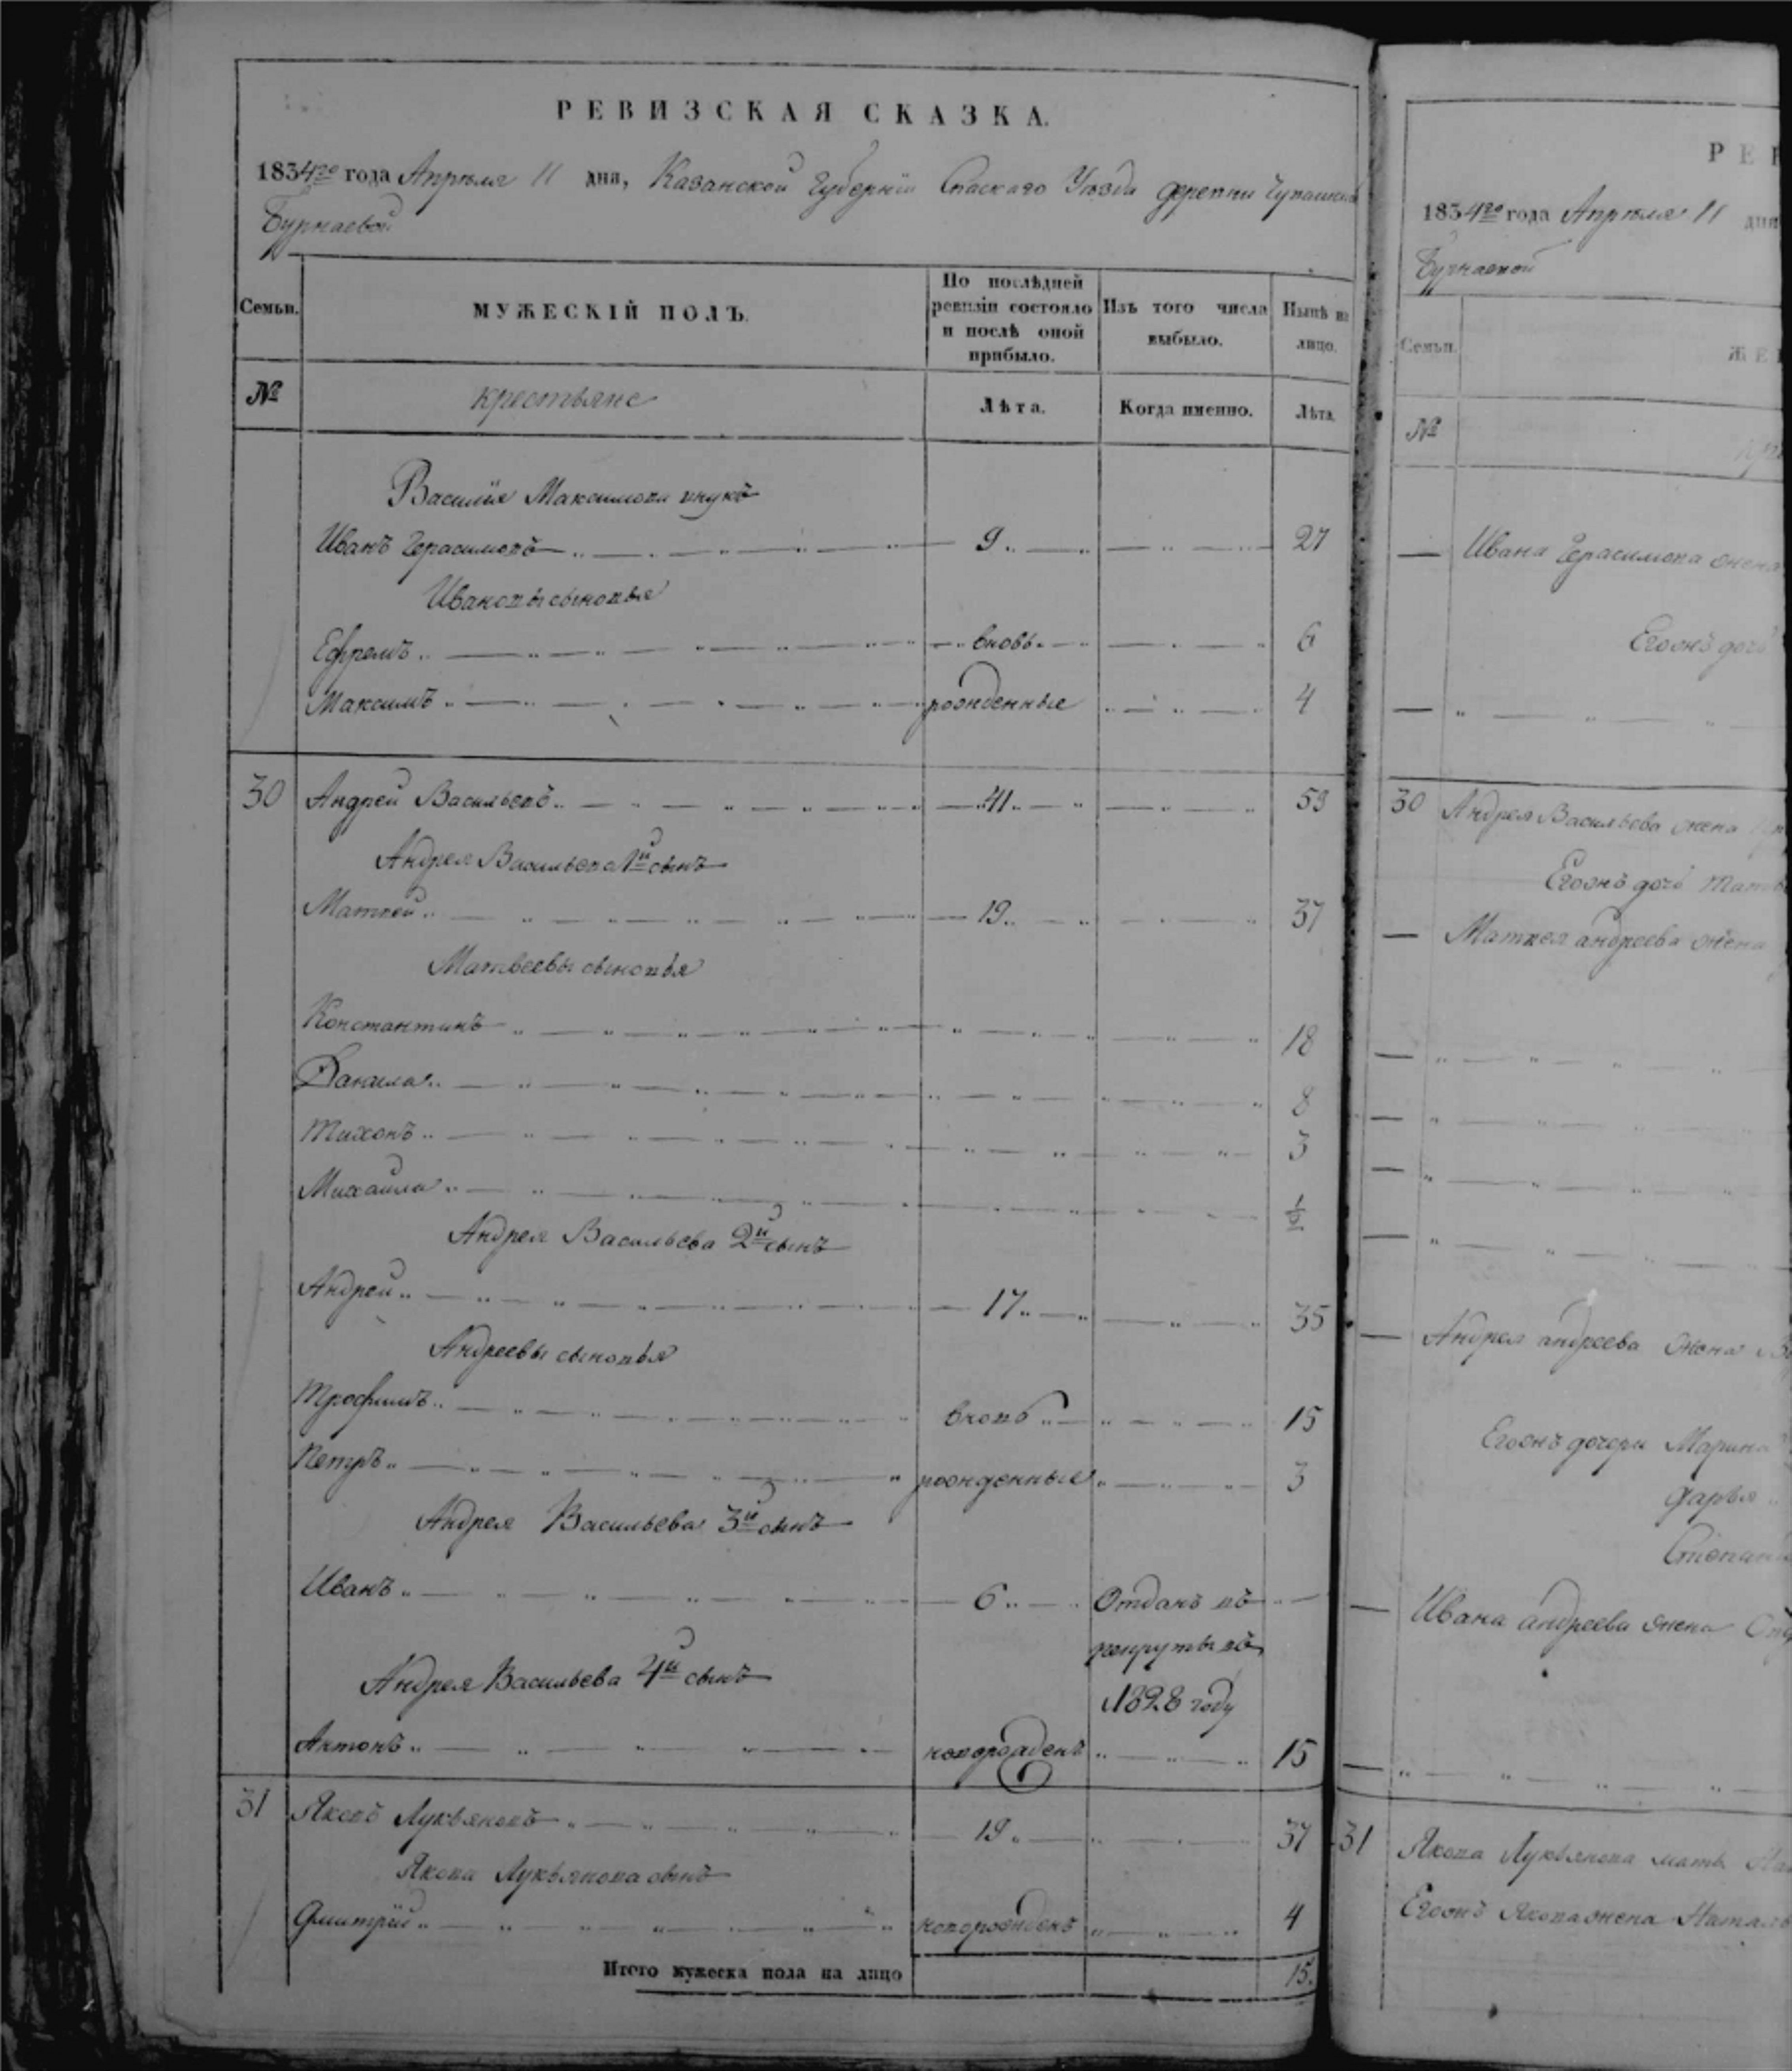 РЕВИЗСКАЯ СКАЗКА.
1834го года Апреля 11 дня, Казанской Губерніи Спаскаго Уѣзда деревни Чувашской
Бурнаевой
Семьи.
МУЖЕСКІЙ ПОЛЪ.
По послѣдней ревизіи состояло и послѣ оной прибыло.
Изъ того числа выбыло.
Нынѣ на лицо.
№
крестьяне
Лѣта.
Когда именно.
Лѣта.
Василия Максимова внукъ
Иванъ Герасимовъ 9 27
Ивановы сыновья
Ефремъ вновь 6
Максимъ рожденные 4
30 Андрей Васильевъ 41 59
Андрея Васильева 1й сынъ
Матвей 19 37
Матвеевы сыновья
Константинъ 18
Данила 8
Тихонъ 3
Михаила ½
Андрея Васильева 2й сынъ
Андрей 17 35
Андреевы сыновья
Трофимъ вновь 15
Петръ рожденные 3
Андрея Васильева 3й сынъ
Иванъ 6 Отданъ въ
рекруты въ
1828 году
Андрея Васильева 4й сынъ
Антонъ новорожденъ 15
31 Яковъ Лукьяновъ 19 37
Якова Лукьянова сынъ
Дмитрий новорожденъ 4
Итого мужеска пола на лицо 15.
РЕ
1834го года Апреля 11 дня
Бурнаевой
Семьи.
ЖЕ
№
Ивана Герасимова жена
Егожъ дочь
30 Андрея Васильева жена
Егожъ дочь
Матвея андреева жена
Андрея андреева жена
Егожъ дочери Марина
Дарья
Ивана андреева жена
31 Якова Лукьянова мать
Егожъ Якова жена Наталь